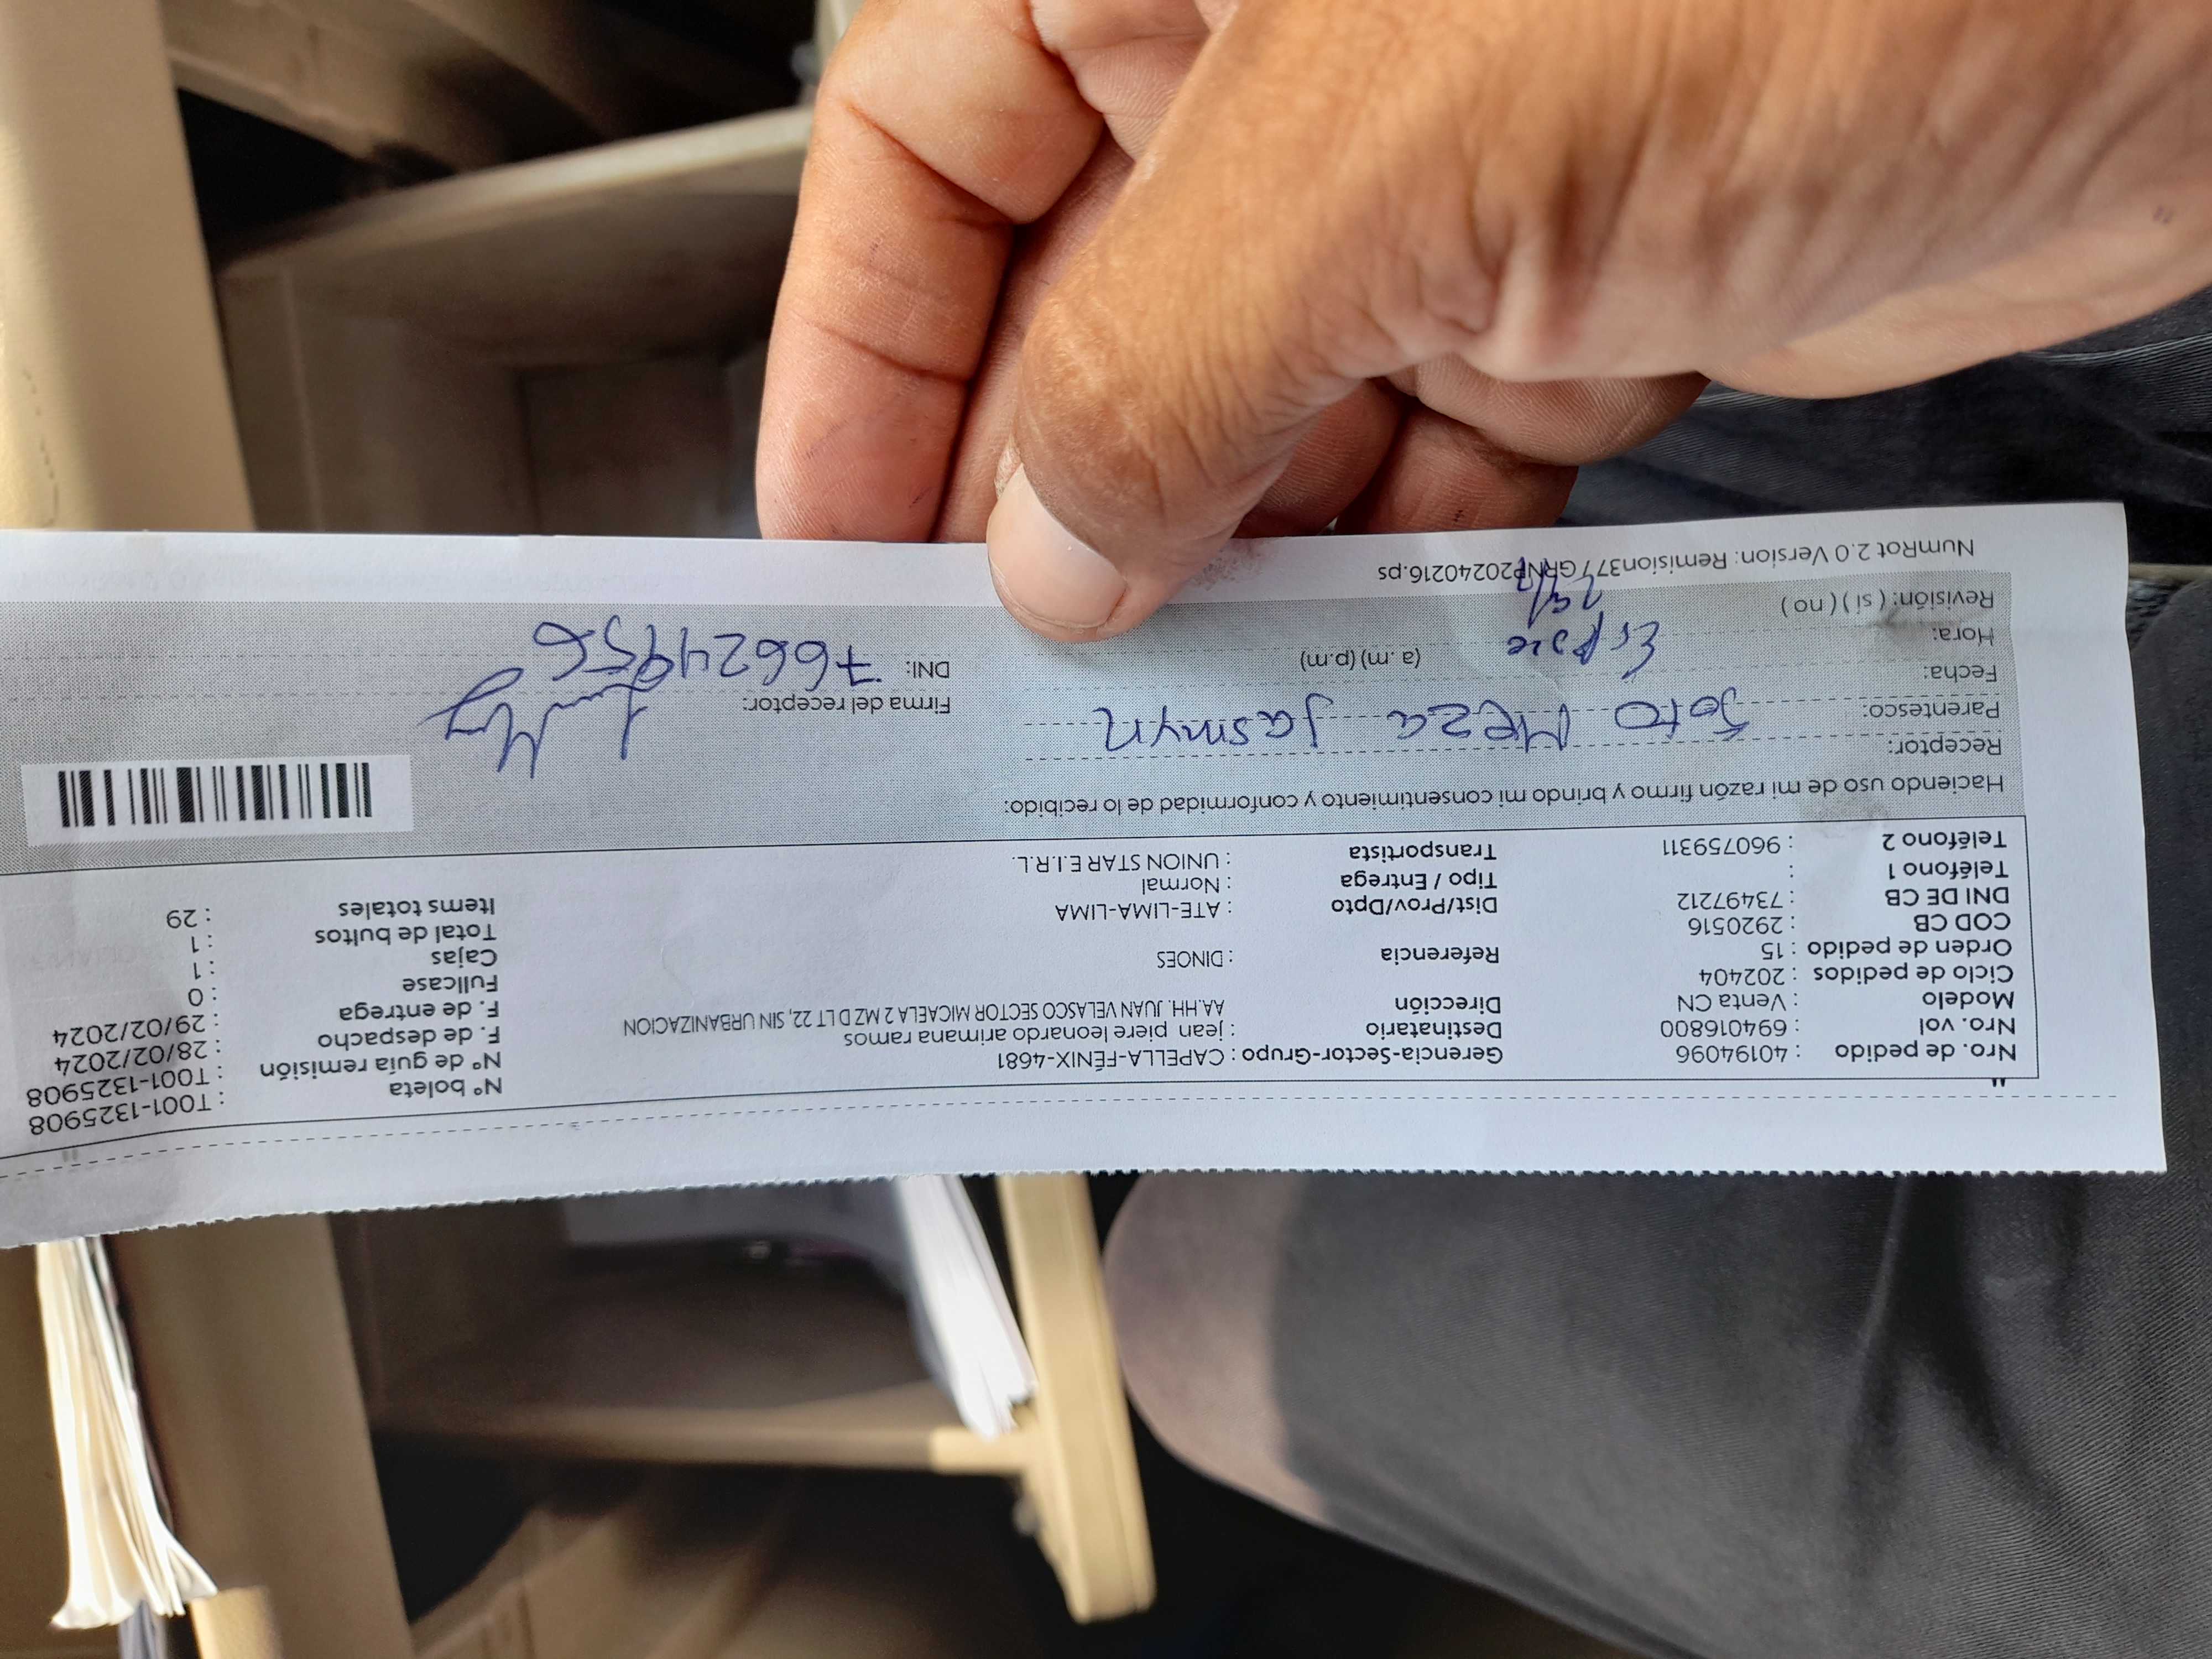 Nro. de pedido : 40194096
Nro. vol : 694016800
Modelo : Venta CN
Ciclo de pedidos : 202404
Orden de pedido : 15
COD CB : 2920516
DNI DE CB : 73497212
Teléfono 1 :
Teléfono 2 : 960759311
Gerencia-Sector-Grupo : CAPELLA-FÉNIX-4681
Destinatario : jean piere leonardo arimana ramos
Dirección AA.HH. JUAN VELASCO SECTOR MICAELA 2 MZ D LT 22, SIN URBANIZACION
Referencia : DINOES
Dist/Prov/Dpto : ATE-LIMA-LIMA
Tipo / Entrega : Normal
Transportista : UNION STAR E.I.R.L.
N° boleta : T001-1325908
N° de guía remisión : T001-1325908
F. de despacho : 28/02/2024
F. de entrega : 29/02/2024
Fullcase : 0
Cajas : 1
Total de bultos : 1
Items totales : 29
Haciendo uso de mi razón firmo y brindo mi consentimiento y conformidad de lo recibido:
Receptor: Soto Meza Jasmyn
Parentesco:
Fecha:
Hora: (a. m) (p.m)
Revisión: ( sí ) ( no )
Firma del receptor:
DNI: 76624956
NumRot 2.0 Version: Remision377GRNP20240216.ps